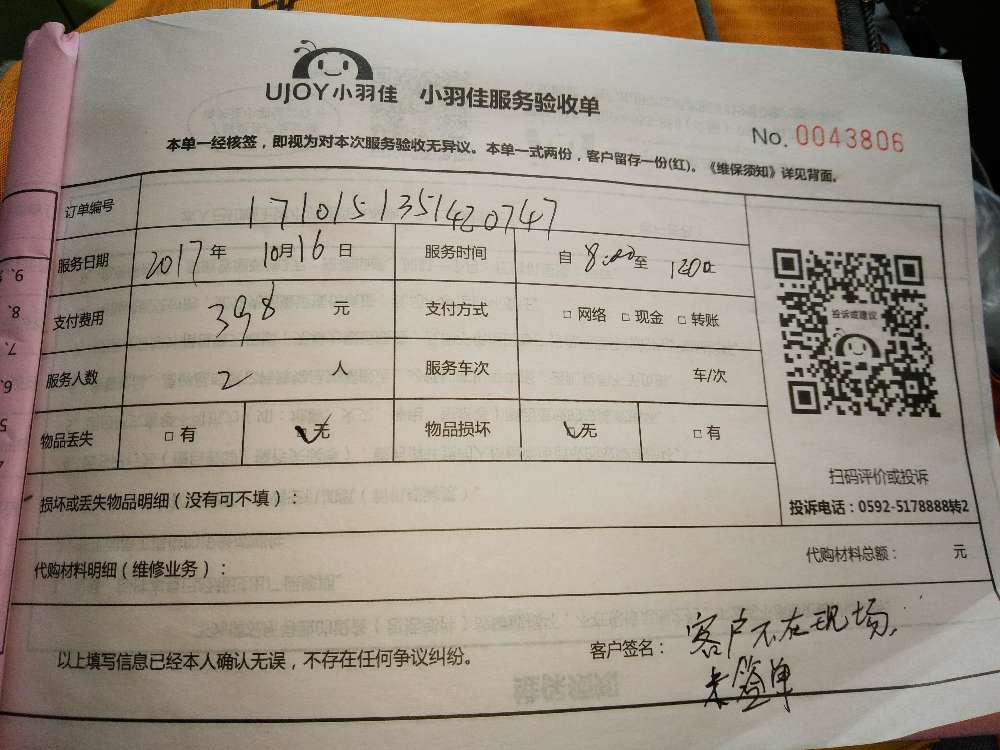 UJOY小羽佳 小羽佳服务验收单
No. 0043806
本单一经核签，即视为对本次服务验收无异议。本单一式两份，客户留存一份(红)。《维保须知》详见背面。
订单编号 1710151351420747
服务日期 2017年 10月16日 服务时间 自 8:00至 1200止
支付费用 398 元 支付方式 □ 网络 □ 现金 □ 转账
投诉或建议
服务人数 2 人 服务车次 车/次
物品丢失 □ 有 ☑ 无 物品损坏 ☑ 无 □ 有
扫码评价或投诉
损坏或丢失物品明细（没有可不填）：
投诉电话：0592-5178888转2
代购材料明细（维修业务）：
代购材料总额： 元
以上填写信息已经本人确认无误，不存在任何争议纠纷。
客户签名： 客户不在现场，
未签单
9.
8.
7.
6.
5